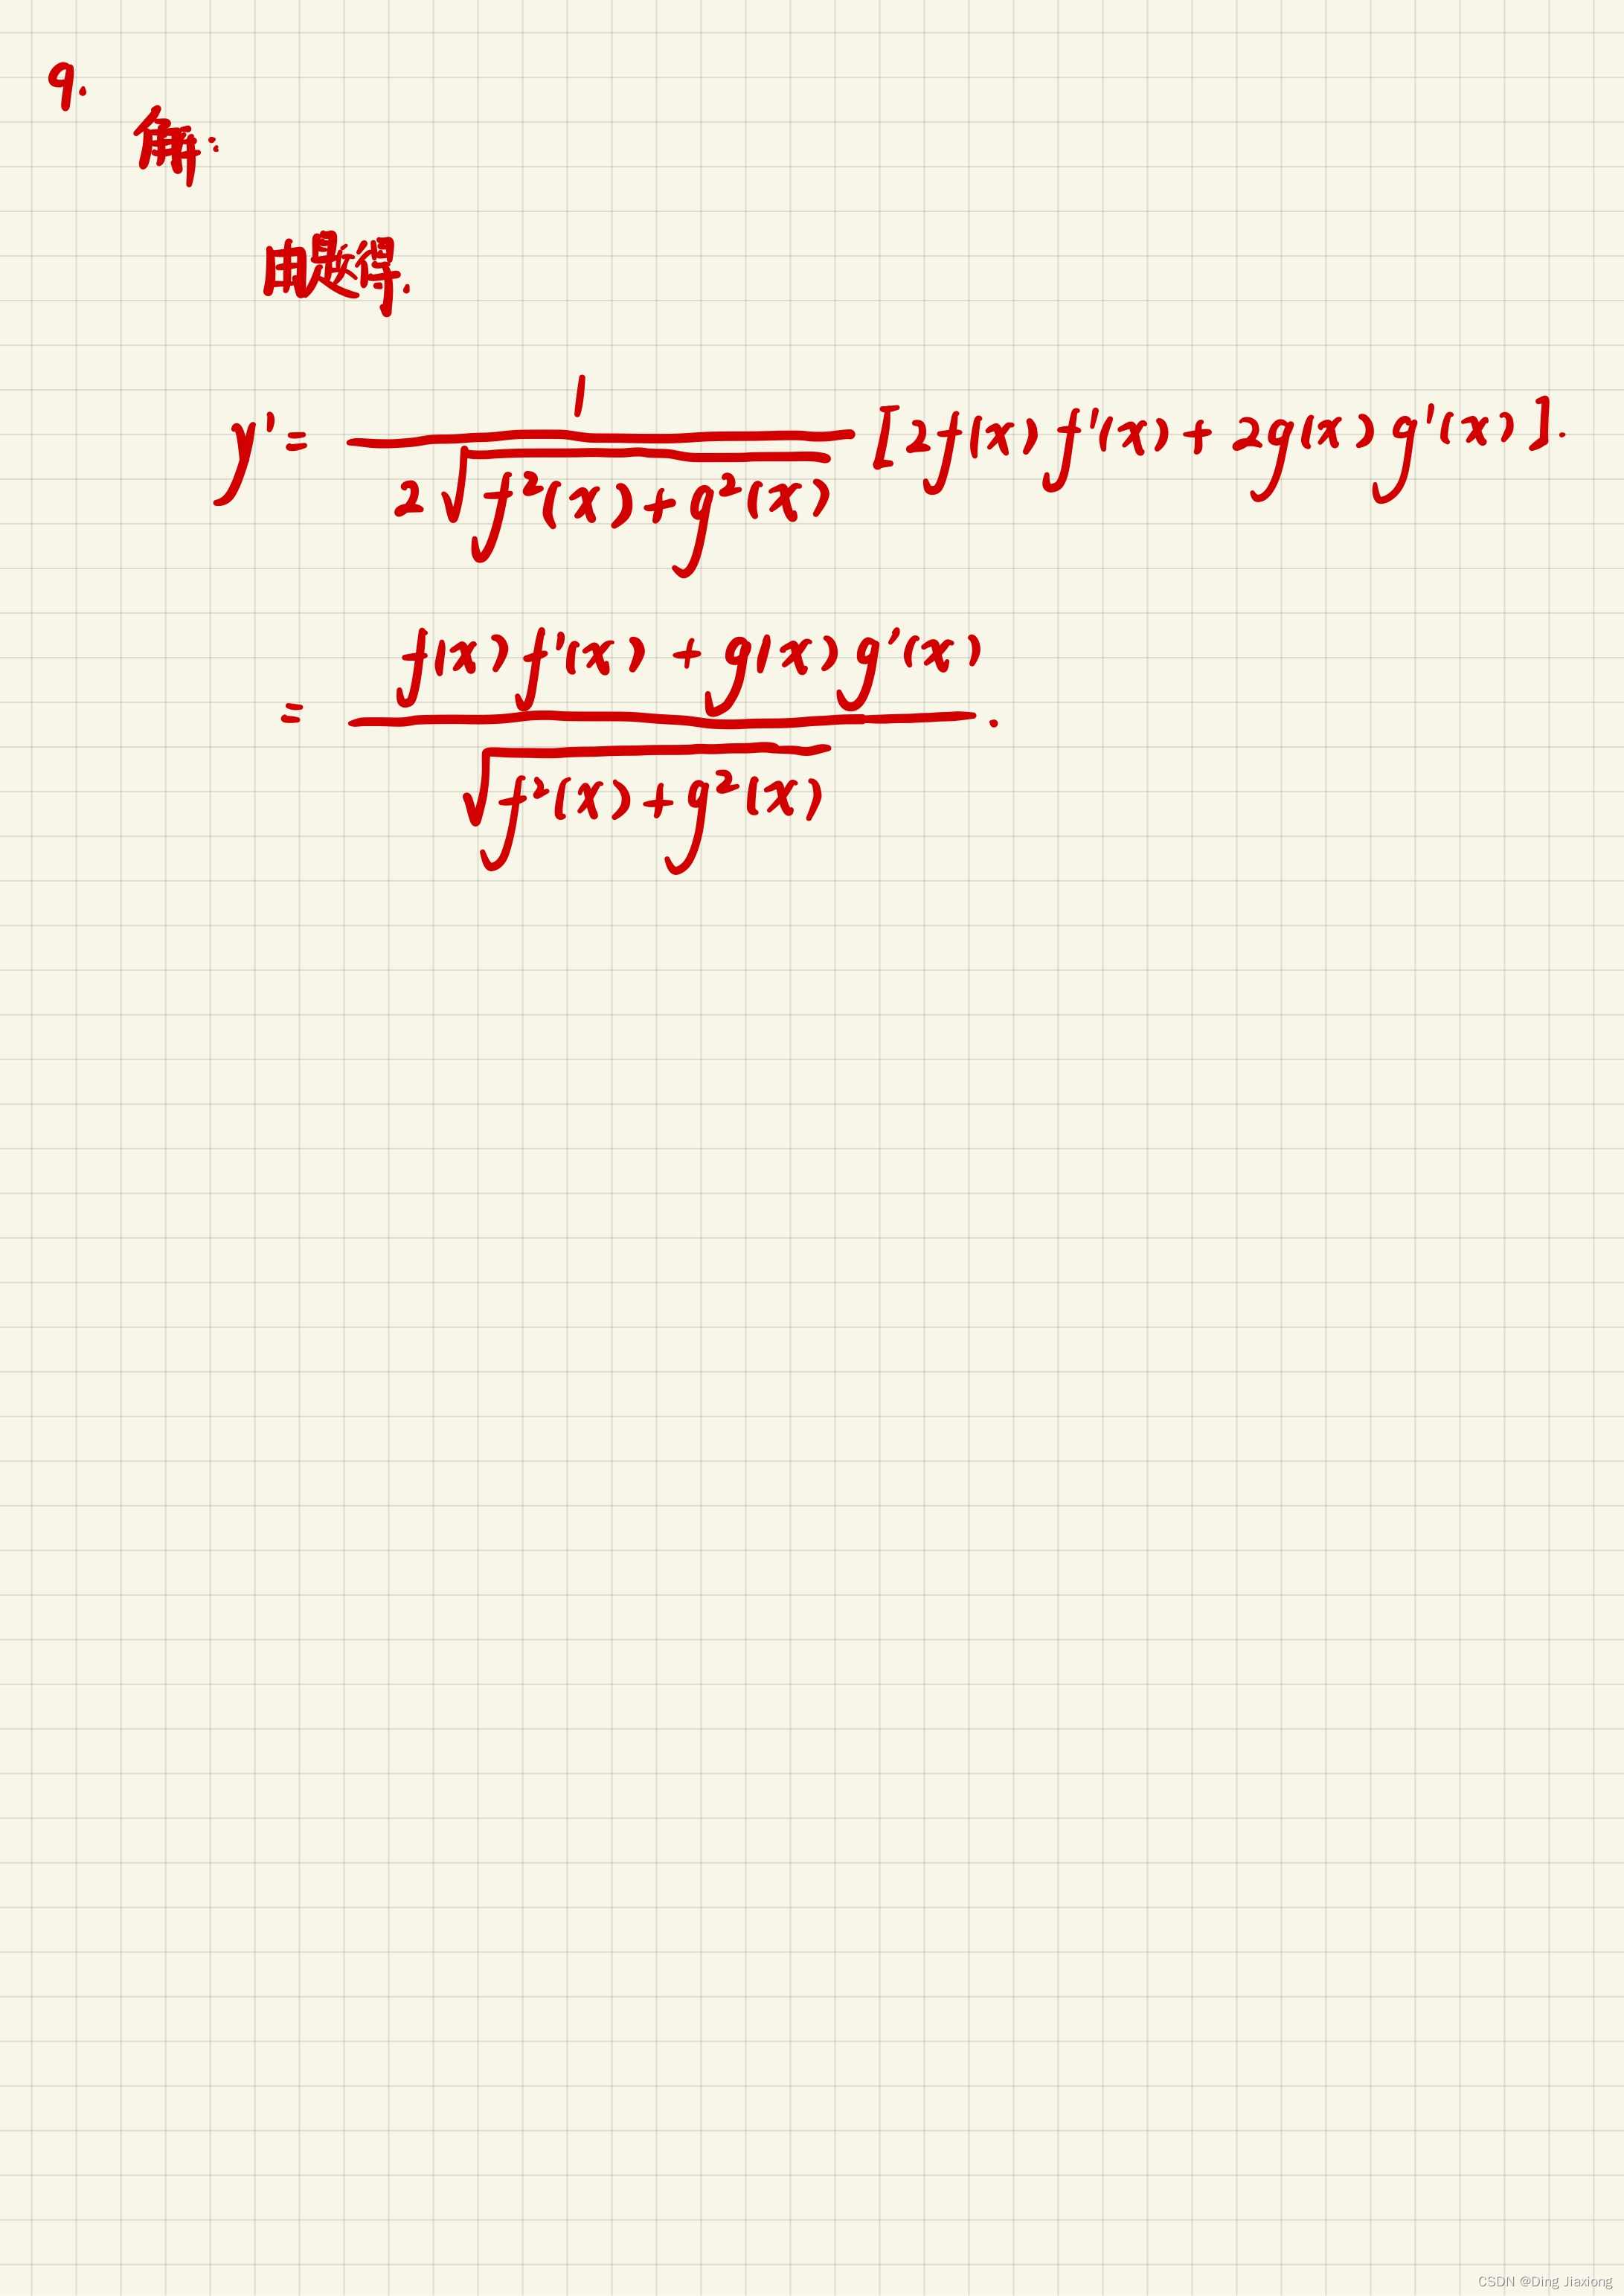 9.
解:
由题得.
y' = \frac{1}{2\sqrt{f²(x)+g²(x)}} [2f(x)f'(x)+2g(x)g'(x)].
= \frac{f(x)f'(x)+g(x)g'(x)}{\sqrt{f²(x)+g²(x)}}.
CSDN @Ding Jiaxiong